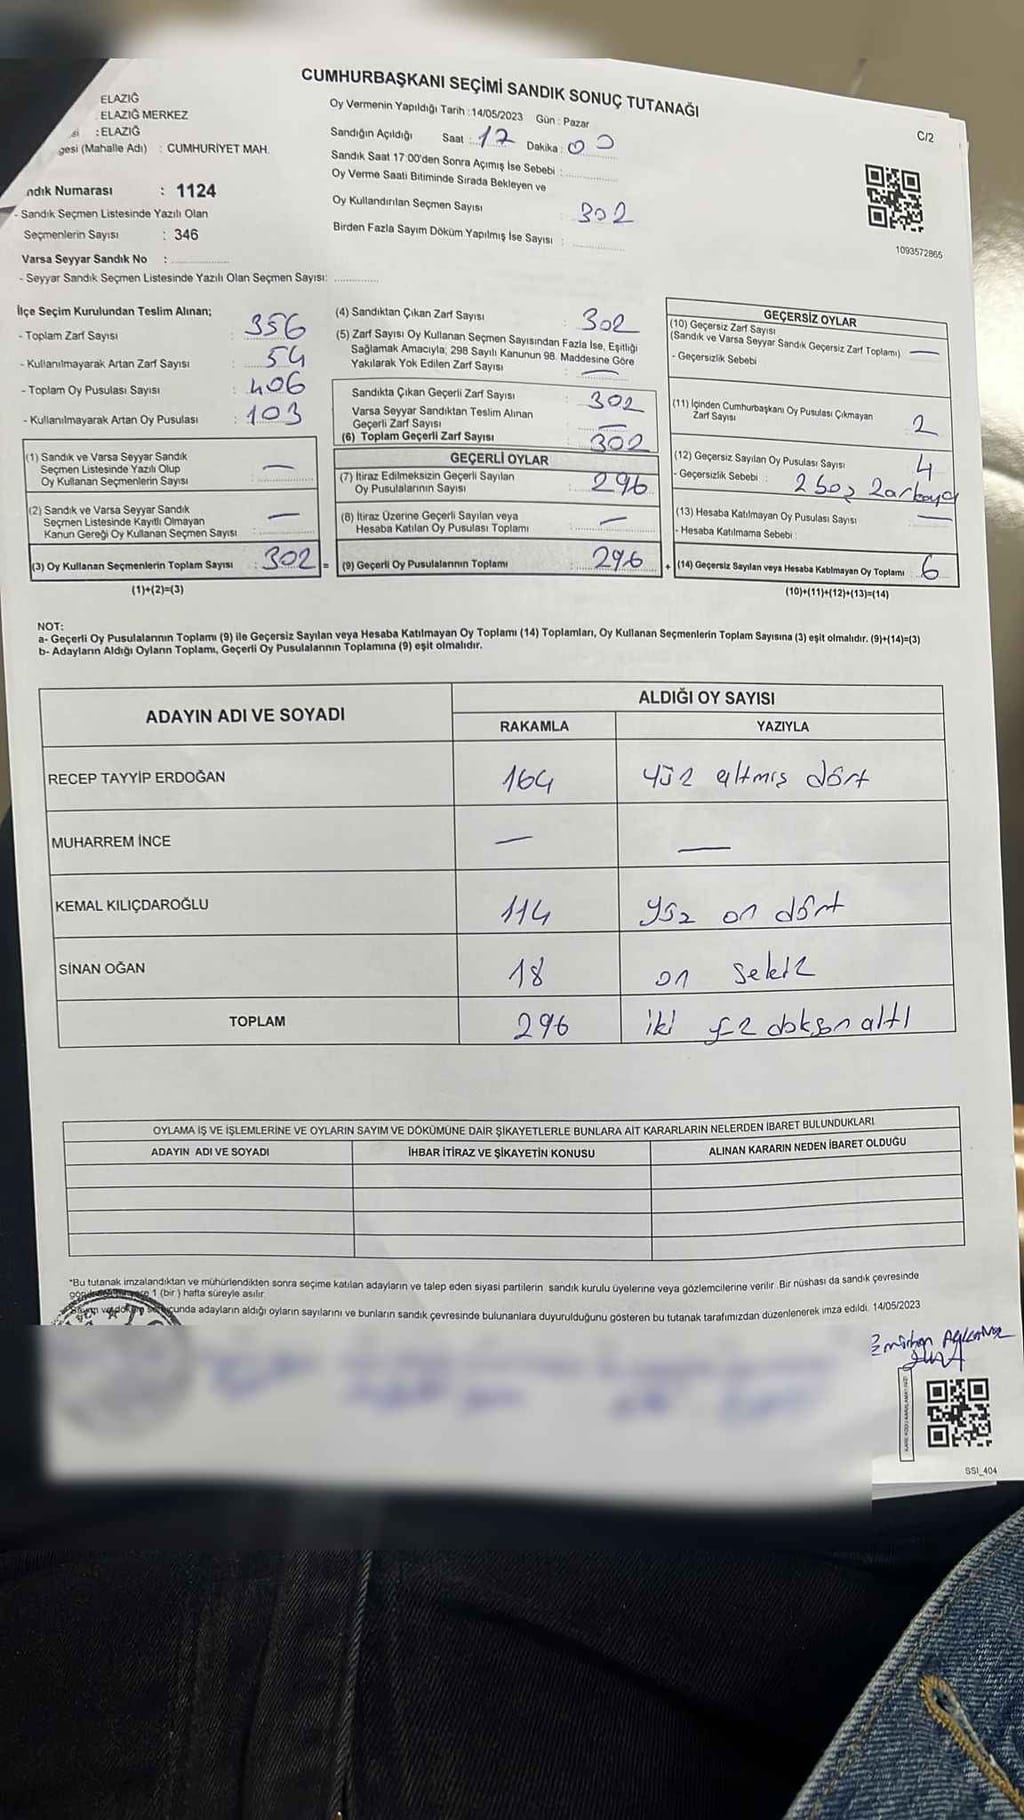 CUMHURBAŞKANI SEÇİMİ SANDIK SONUÇ TUTANAĞI
C/2
ELAZIĞ
ELAZIĞ MERKEZ
: ELAZIĞ
gesi (Mahalle Adı) : CUMHURİYET MAH.
ndık Numarası : 1124
- Sandık Seçmen Listesinde Yazılı Olan
Seçmenlerin Sayısı : 346
Varsa Seyyar Sandık No :
- Seyyar Sandık Seçmen Listesinde Yazılı Olan Seçmen Sayısı:
Oy Vermenin Yapıldığı Tarih : 14/05/2023 Gün : Pazar
Sandığın Açıldığı Saat : 17 Dakika : 00
Sandık Saat 17:00'den Sonra Açımış İse Sebebi :
Oy Verme Saati Bitiminde Sırada Bekleyen ve
Oy Kullandırılan Seçmen Sayısı : 302
Birden Fazla Sayım Döküm Yapılmış İse Sayısı :
1093572865
İlçe Seçim Kurulundan Teslim Alınan;
- Toplam Zarf Sayısı : 356
- Kullanılmayarak Artan Zarf Sayısı : 54
- Toplam Oy Pusulası Sayısı : 406
- Kullanılmayarak Artan Oy Pusulası : 103
(1) Sandık ve Varsa Seyyar Sandık
Seçmen Listesinde Yazılı Olup
Oy Kullanan Seçmenlerin Sayısı : —
(2) Sandık ve Varsa Seyyar Sandık
Seçmen Listesinde Kayıtlı Olmayan
Kanun Gereği Oy Kullanan Seçmen Sayısı : —
(3) Oy Kullanan Seçmenlerin Toplam Sayısı : 302 =
(1)+(2)=(3)
(4) Sandıktan Çıkan Zarf Sayısı : 302
(5) Zarf Sayısı Oy Kullanan Seçmen Sayısından Fazla İse, Eşitliği
Sağlamak Amacıyla; 298 Sayılı Kanunun 98. Maddesine Göre
Yakılarak Yok Edilen Zarf Sayısı : —
Sandıkta Çıkan Geçerli Zarf Sayısı : 302
Varsa Seyyar Sandıktan Teslim Alınan
Geçerli Zarf Sayısı : —
(6) Toplam Geçerli Zarf Sayısı : 302
GEÇERLİ OYLAR
(7) İtiraz Edilmeksizin Geçerli Sayılan
Oy Pusulalarının Sayısı : 296
(8) İtiraz Üzerine Geçerli Sayılan veya
Hesaba Katılan Oy Pusulası Toplamı : —
(9) Geçerli Oy Pusulalarının Toplamı : 296 +
GEÇERSİZ OYLAR
(10) Geçersiz Zarf Sayısı
(Sandık ve Varsa Seyyar Sandık Geçersiz Zarf Toplamı) —
- Geçersizlik Sebebi
(11) İçinden Cumhurbaşkanı Oy Pusulası Çıkmayan
Zarf Sayısı 2
(12) Geçersiz Sayılan Oy Pusulası Sayısı 4
- Geçersizlik Sebebi : 2 boş 2
(13) Hesaba Katılmayan Oy Pusulası Sayısı —
- Hesaba Katılmama Sebebi :
(14) Geçersiz Sayılan veya Hesaba Katılmayan Oy Toplamı 6
(10)+(11)+(12)+(13)=(14)
NOT:
a- Geçerli Oy Pusulalarının Toplamı (9) ile Geçersiz Sayılan veya Hesaba Katılmayan Oy Toplamı (14) Toplamları, Oy Kullanan Seçmenlerin Toplam Sayısına (3) eşit olmalıdır. (9)+(14)=(3)
b- Adayların Aldığı Oyların Toplamı, Geçerli Oy Pusulalarının Toplamına (9) eşit olmalıdır.
ADAYIN ADI VE SOYADI
ALDIĞI OY SAYISI
RAKAMLA YAZIYLA
RECEP TAYYİP ERDOĞAN 164 yüz altmış dört
MUHARREM İNCE — —
KEMAL KILIÇDAROĞLU 114 yüz on dört
SİNAN OĞAN 18 on sekiz
TOPLAM 296 iki yüz doksan altı
OYLAMA İŞ VE İŞLEMLERİNE VE OYLARIN SAYIM VE DÖKÜMÜNE DAİR ŞİKAYETLERLE BUNLARA AİT KARARLARIN NELERDEN İBARET BULUNDUKLARI
ADAYIN ADI VE SOYADI İHBAR İTİRAZ VE ŞİKAYETİN KONUSU ALINAN KARARIN NEDEN İBARET OLDUĞU
*Bu tutanak imzalandıktan ve mühürlendikten sonra seçime katılan adayların ve talep eden siyasi partilerin sandık kurulu üyelerine veya gözlemcilerine verilir. Bir nüshası da sandık çevresinde
1 (bir) hafta süreyle asılır.
adayların aldığı oyların sayılarını ve bunların sandık çevresinde bulunanlara duyurulduğunu gösteren bu tutanak tarafımızdan düzenlenerek imza edildi. 14/05/2023
SSI_404